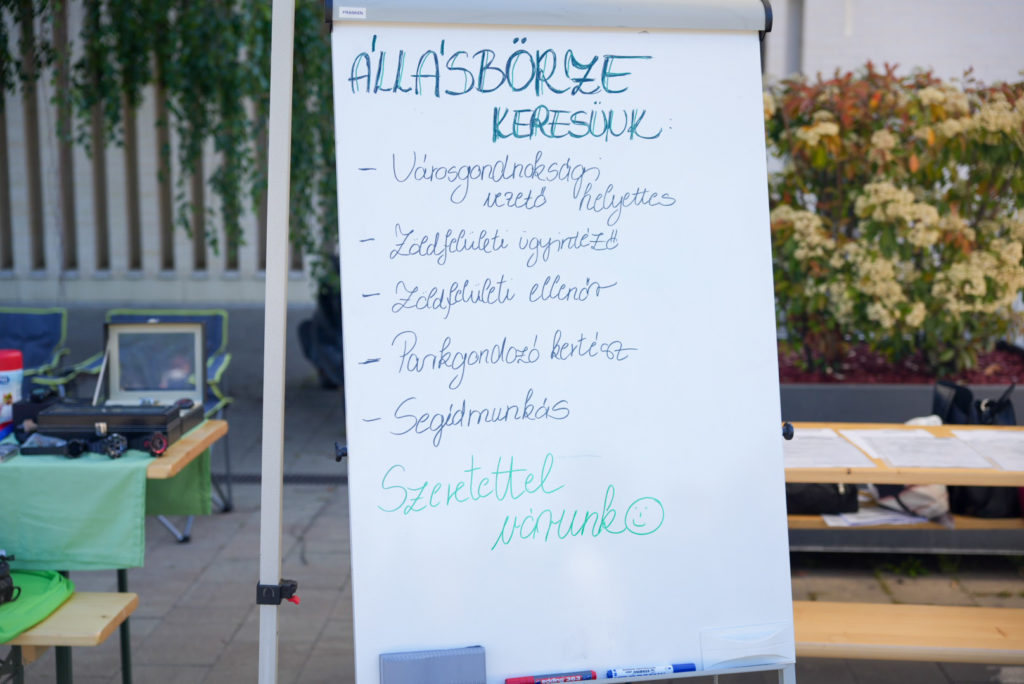 FRANKEN
ÁLLÁSBÖRZE
KERESÜNK:
- Városgondnoksági
vezető helyettes
- Zöldfelületi ügyintéző
- Zöldfelületi ellenőr
- Parkgondozó kertész
- Segédmunkás
Szeretettel
várunk☺
edding 363